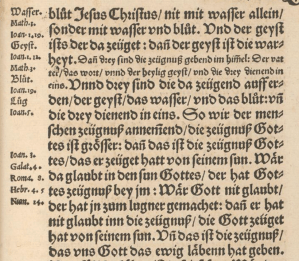 Wasser.
Math.3.
Ioan.1.19.
Geyst.
Ioan.1.12.
Math.3.
Blůt.
Ioan.19.
Lüg
Ioan.5.
Ioan.1.
Galat.4.
Roma. 8.
Hebr. 4. 5
Num. 14.
blůt Jesus Christus/ nit mit wasser allein/
sonder mit wasser vnd blůt. Vnd der geyst
ists der da zeüget: dañ der geyst ist die war-
heyt. Dañ drey sind die zeügnuß gebend im him̃el: Der vat
ter/ das wort/ vnnd der heylig geyst/ vnd die drey dienend in
eins. Vnnd drey sind die da zeügend auff er-
den/ der geyst/ das wasser/ vnnd das blůt: vñ
die drey dienend in eins. So wir der men-
schen zeügnuß annem̃end/ die zeügnuß Got-
tes ist grösser: dañ das ist die zeügnuß Got-
tes/ das er zeüget hatt von seinem sun. Wär
da glaubt in den sun Gottes/ der hat Got-
tes zeügnuß bey jm: Wär Gott nit glaubt/
der hat jn zum lugner gemachet: dañ er hat
nit glaubt inn die zeügnuß/ die Gott zeüget
hat von seinem sun. Vñ das ist die zeügnuß/
das vns Gott das ewig läbenn hat geben.